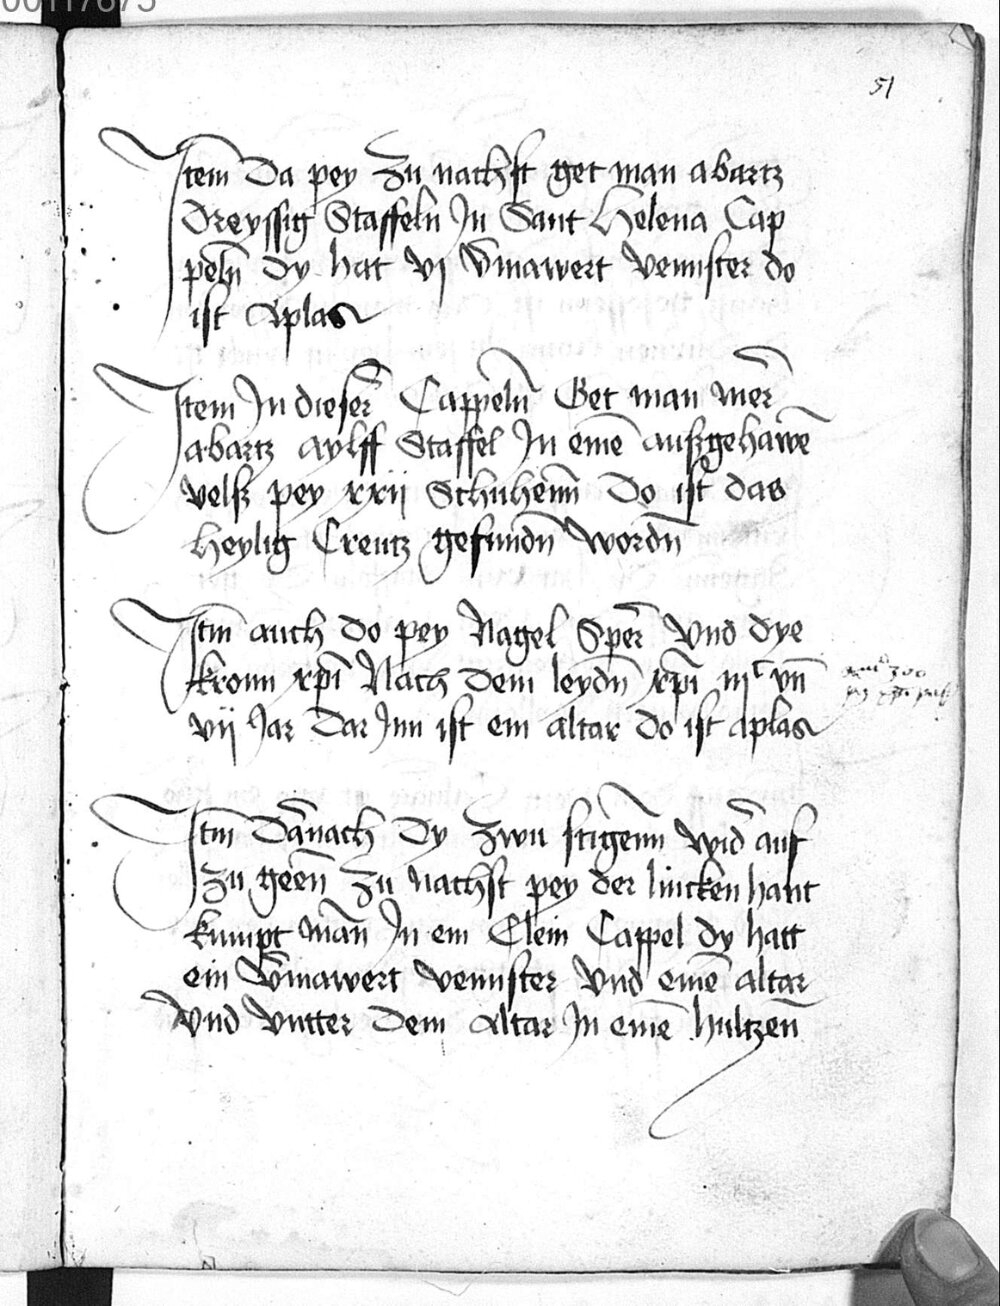 51
Item Da pey zu nachst get man abartz
Dreyssig Staffeln In Sant Helena Cap
peln dy hat vj vennster do
ist Aplas
Item In dieser Cappeln Get man mer
abartz aylff Staffel In eine außgehawē
velß pey xxij Schuhenn Do ist das
Heylig Creutz gefundn wordn
Itm auch do pey Nagel Sper Vnd dye
kronn xpī Nach dem leydn xpī iijc vn̄
vij Jar Dar Inn ist ein altar do ist aplas
Itm Darnach Dy zwu stigenn wid auf
zu geen zu nachst pey der lincken hant
kumpt man In ein Clein Cappel dy hatt
ein vennster Vnd einē altar
Vnd Vntter Dem Altar In einē hultzen